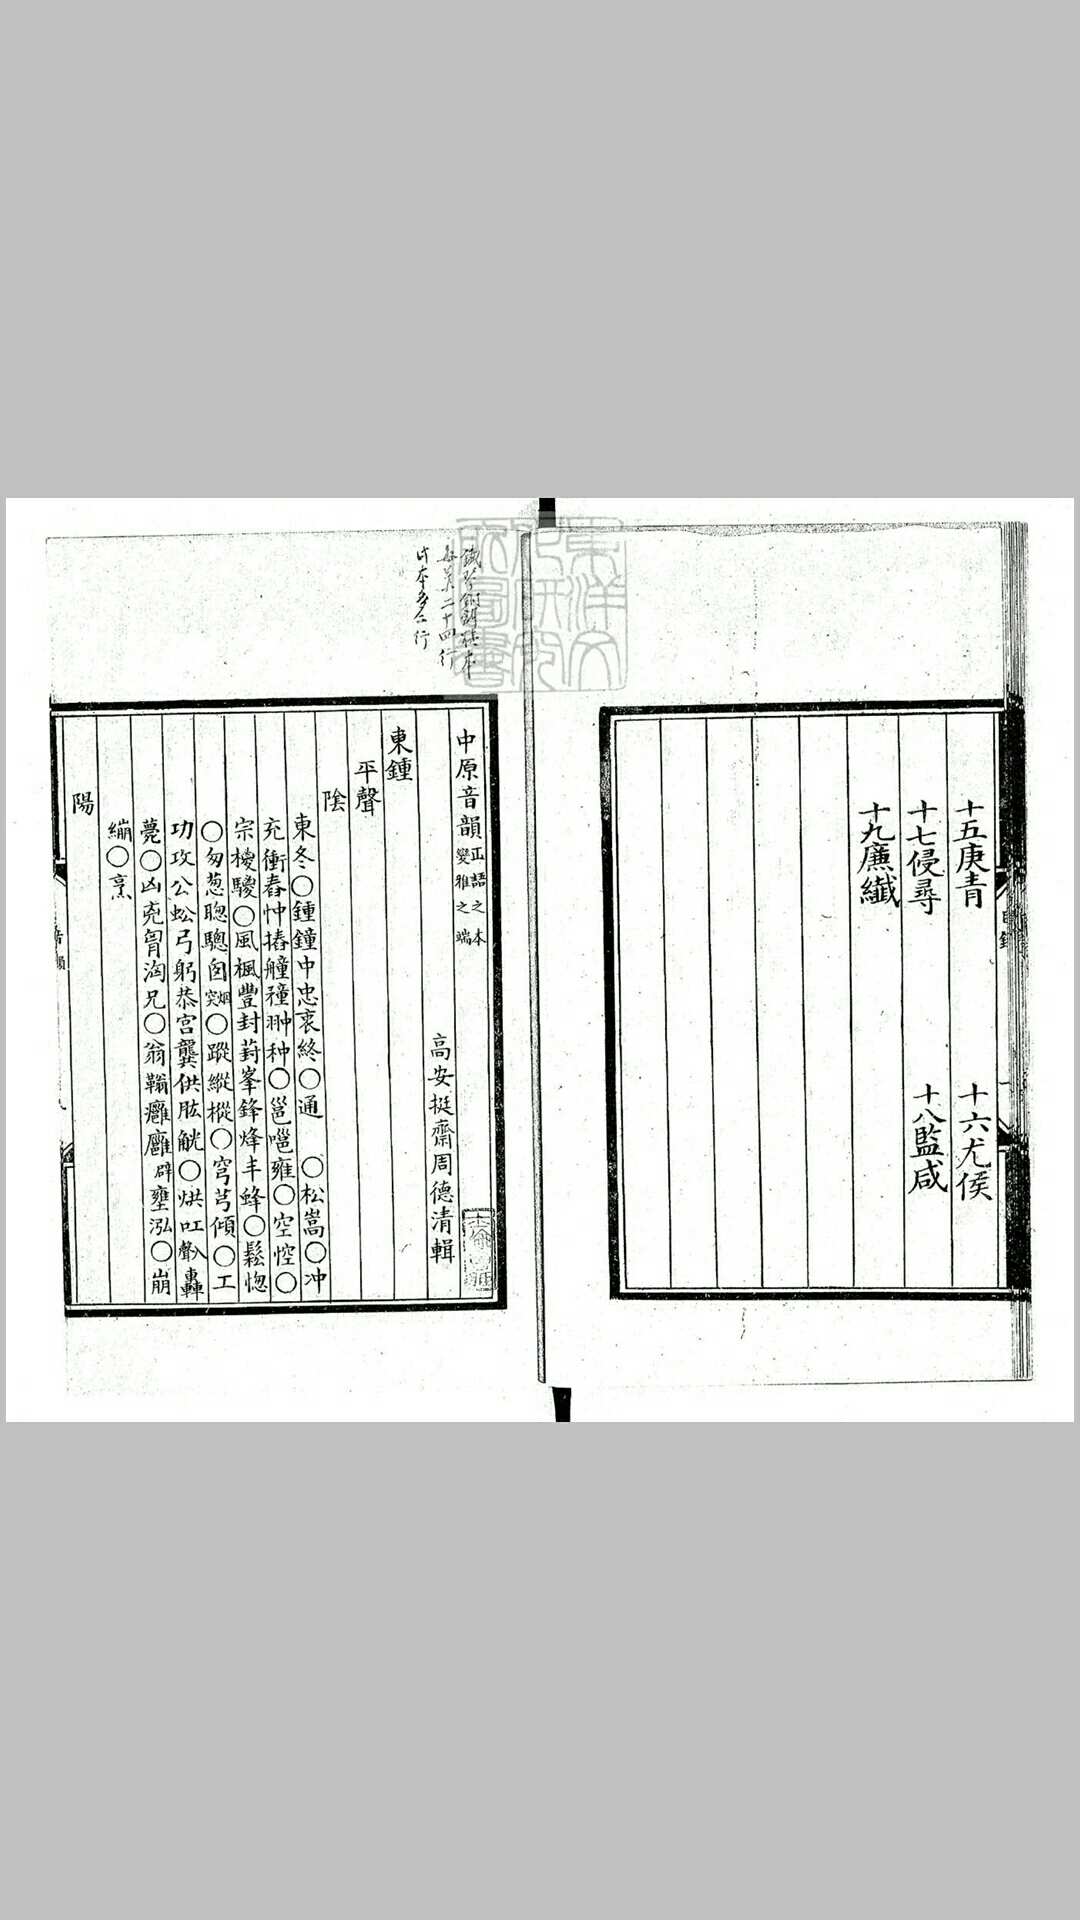 十五庚青　十六尤侯
十七侵尋　十八監咸
十九廉纖
中原音韻 正語之本 變雅之端
高安挺齋周德清輯
東鍾
平聲
陰
東冬○鍾鐘中忠衷終○通　○松嵩○冲
充衝舂忡摏艟穜翀种○邕噰雍○空悾○
宗椶騣○風楓豐封葑峯鋒烽丰蜂○鬆惚
○匆葱聰驄囱○蹤縱樅○穹芎傾○工
功攻公蚣弓躬恭宮龔供肱觥○烘吅轟
薨○凶兇胷洶兄○翁壅泓○崩
繃○烹
陽